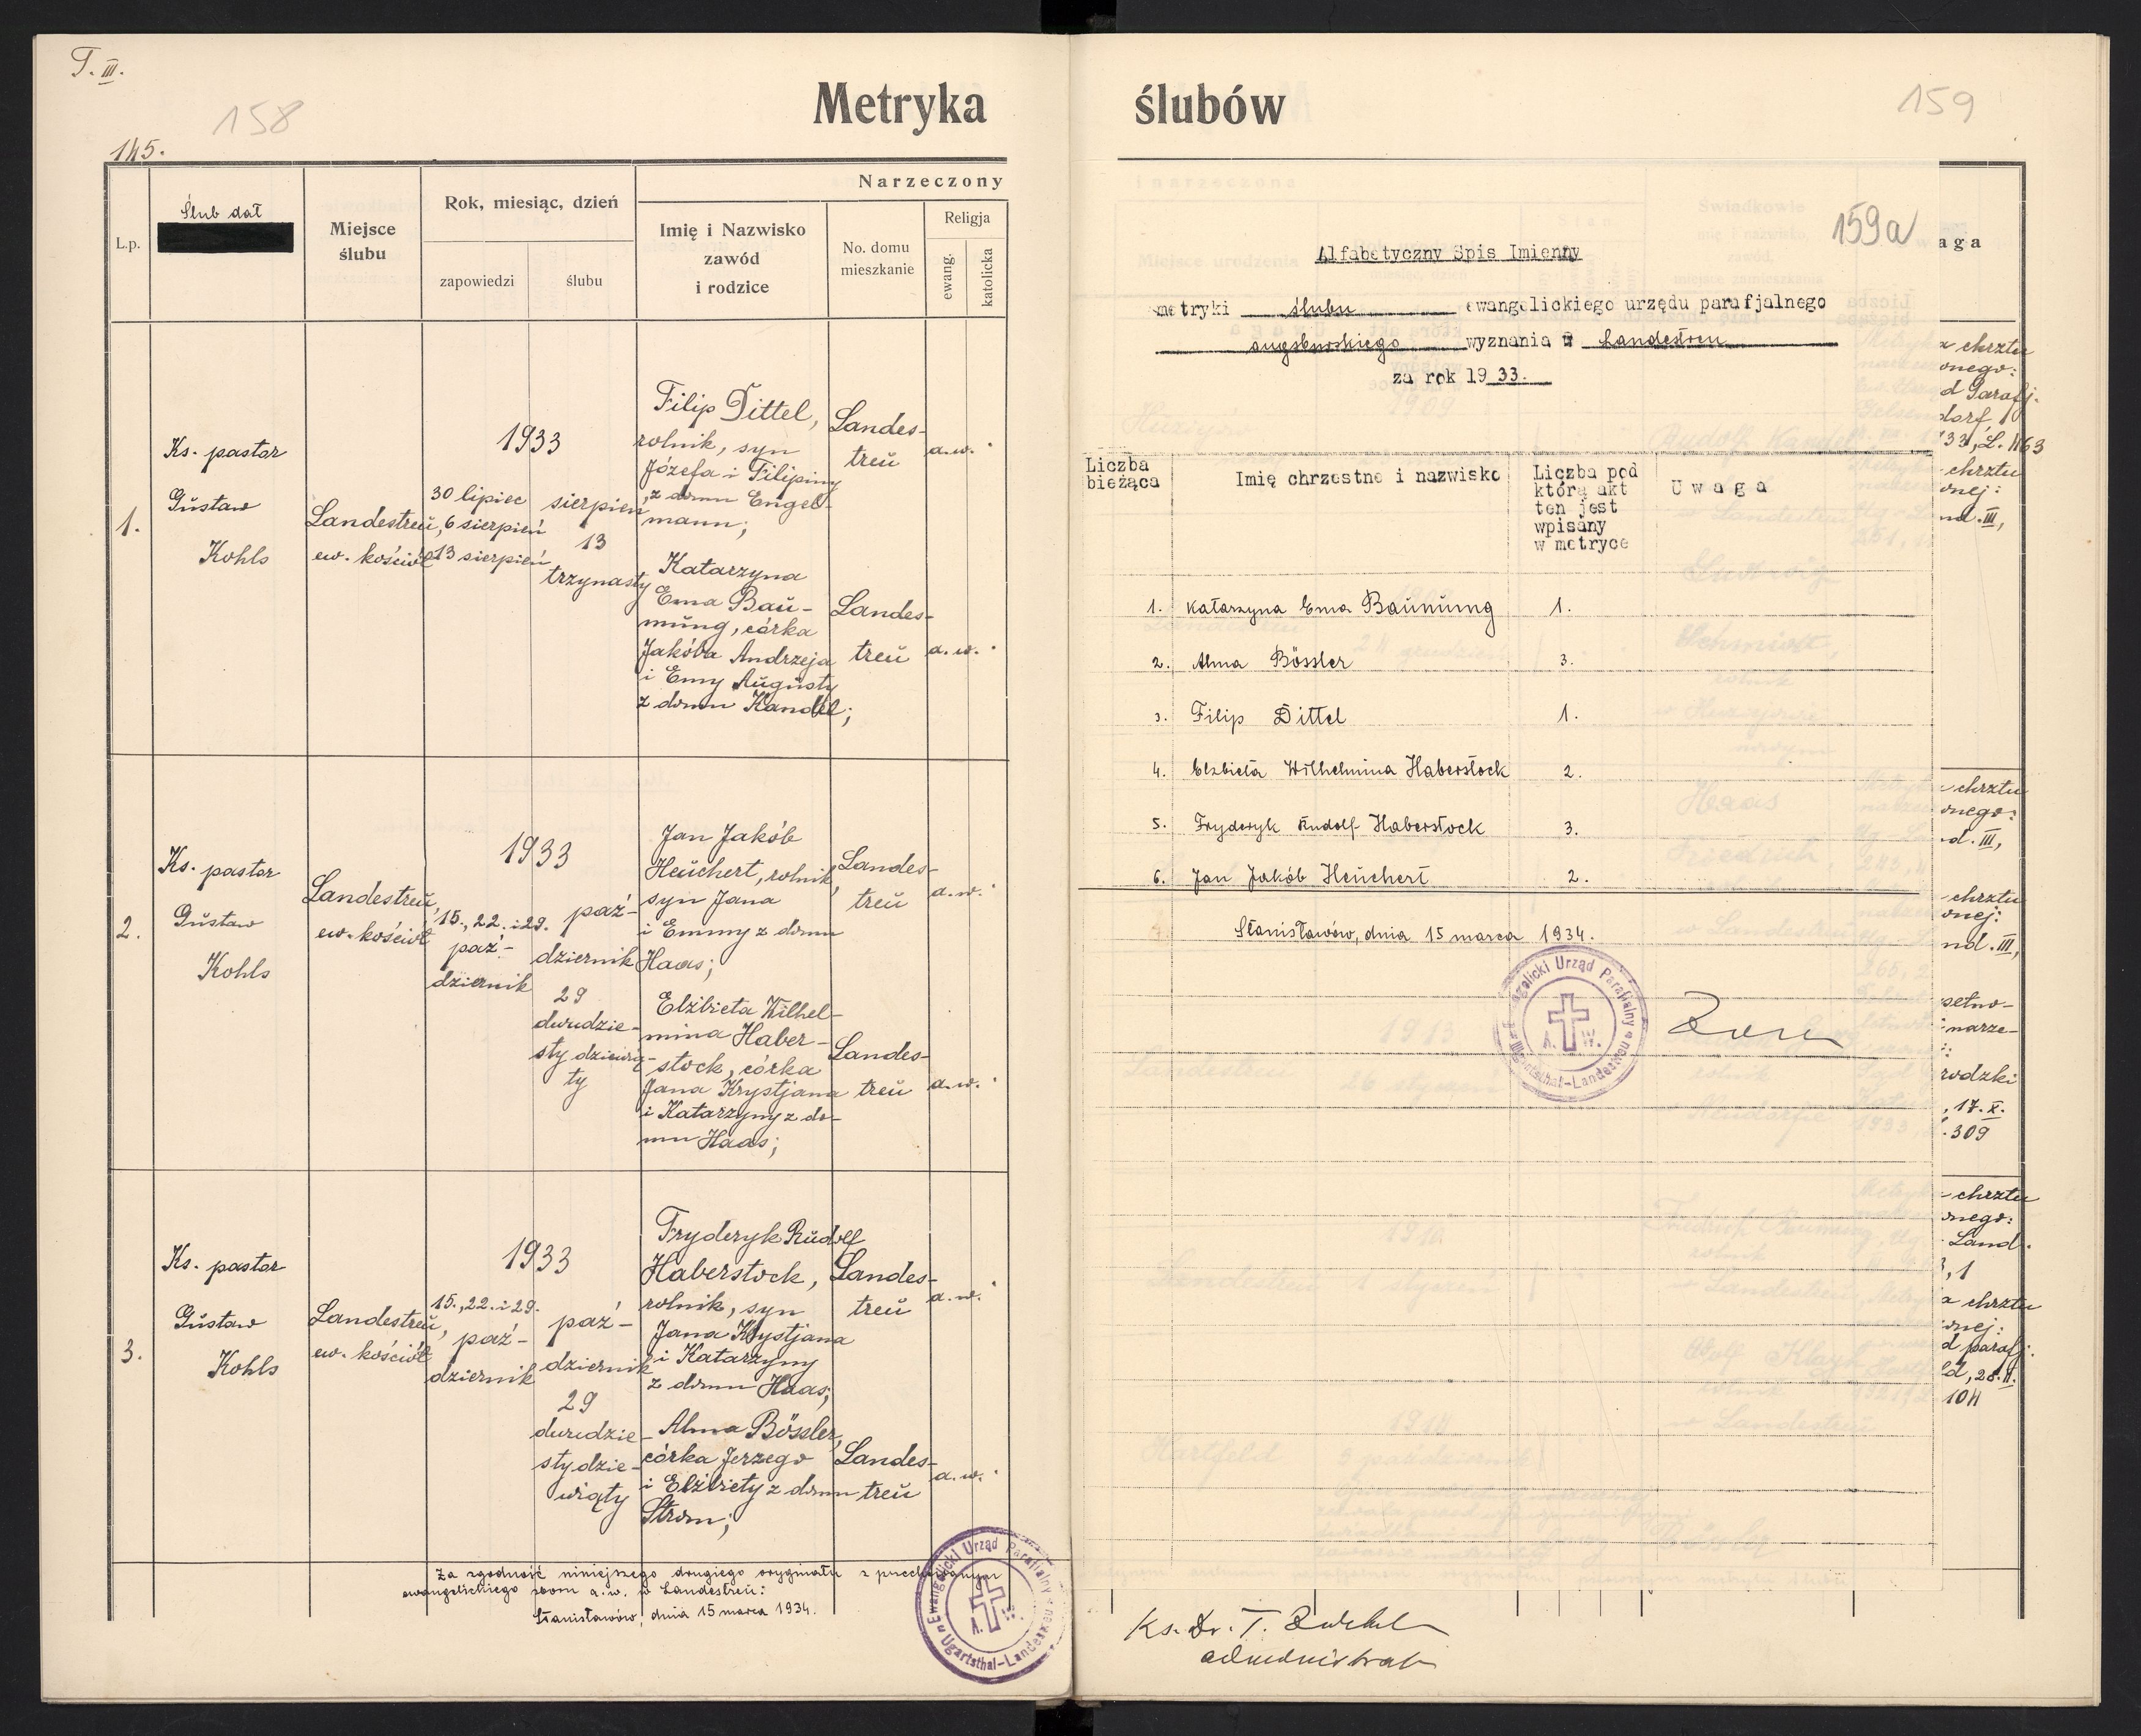 T. III.
158
145.
Metryka
L.p.
Ślub dał
Miejsce
ślubu
Rok, miesiąc, dzień
zapowiedzi
ślubu
Narzeczony
Imię i Nazwisko
zawód
i rodzice
No. domu
mieszkanie
Religja
ewang.
katolicka
1.
Ks. pastor
Gustaw
Kohls
Landestreŭ,
ew. kościół
1933
30 lipiec
6 sierpień
13 sierpień
sierpień
13
trzynasty
Filip Dittel,
rolnik, syn
Józefa i Filipiny
z domu Engel-
mann;
Landes-
treŭ
a.w.
Katarzyna
Ema Baŭ-
mŭng, córka
Jakóba Andrzeja
i Emy Aŭgŭsty
z domu Kandel;
Landes-
treŭ
a.w.
2.
Ks. pastor
Gŭstaw
Kohls
Landestreŭ,
ew. kościół
1933
15., 22. i 29.
paź-
dziernik
paź-
dziernik
29
dwudzie-
sty dziewią-
ty
Jan Jakób
Heŭchert, rolnik,
syn Jana
i Emmy z domu
Haas;
Landes-
treŭ
a.w.
Elżbieta Wilhel-
mina Haber-
stock, córka
Jana Krystjana
i Katarzyny z do-
mu Haas;
Landes-
treŭ
a.w.
3.
Ks. pastor
Gŭstaw
Kohls
Landestreŭ,
ew. kościół
1933
15., 22. i 29.
paź-
dziernik
paź-
dziernik
29
dwudzie-
sty dzie-
wiąty
Fryderyk Rŭdolf
Haberstock,
rolnik, syn
Jana Krystjana
i Katarzyny
z domu Haas;
Landes-
treŭ
a.w.
Alma Bössler,
córka Jerzego
i Elżbiety z domu
Strom;
Landes-
treŭ
a.w.
Za zgodność niniejszego drugiego oryginału z przechowanym
ewangelickiego zboru a.w. w Landestreŭ:
Stanisławów, dnia 15 marca 1934.
Ewangelicki Urząd Parafialny
A. W.
Ugartsthal-Landestreu
ślubów
159
159a
Alfabetyczny Spis Imienny
metryki ślubu ewangelickiego urzędu parafjalnego
augsburskiego wyznania w Landestreu
za rok 1933.
Liczba
bieżąca
Imię chrzestne i nazwisko
Liczba pod
którą akt
ten jest
wpisany
w metryce
Uwaga
1. Katarzyna Ema Baŭmŭng 1.
2. Alma Bössler 3.
3. Filip Dittel 1.
4. Elżbieta Wilhelmina Haberstock 2.
5. Fryderyk Rudolf Haberstock 3.
6. Jan Jakób Heŭchert 2.
Stanisławów, dnia 15 marca 1934.
Ewangelicki Urząd Parafialny
A. W.
Ugartsthal-Landestreu
aga
chrztu
onego:
d Parafj.
dorf,
33, L. 1163
chrztu
onej:
nd. III,
chrztu
onego:
d. III,
chrztu
onej:
nd. III,
setno-
narze-
rodzki
, 17. X.
. 309
chrztu
onego:
Land.
, 1
a chrztu
onej:
d parafj.
ld, 28. II.
104
Ks. Dr. T.
administrator